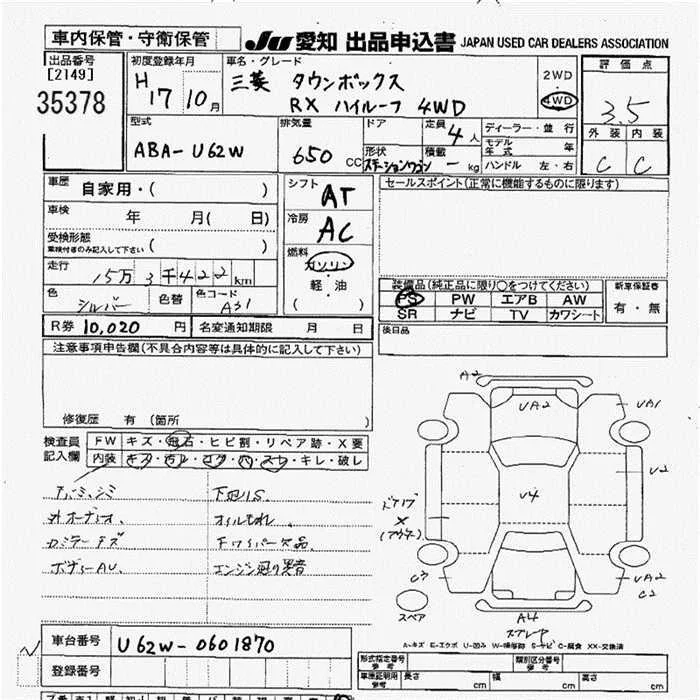 車内保管・守衛保管 JU 愛知 出品申込書 JAPAN USED CAR DEALERS ASSOCIATION
出品番号 初度登録年月 車名・グレード 評価点
[2149] H 三菱 タウンボックス 2WD
35378 17 10月 RX ハイルーフ 4WD 4WD 3.5
型式 排気量 ドア 定員 4人 ディーラー・並 行 外装 内装
ABA-U62W 650 CC 形状 ステーションワゴン 積載 - kg モデル年式 年 C C
ハンドル 左・右
車歴 自家用・( ) シフト AT セールスポイント(正常に機能するものに限ります)
車検 年 月( 日) 冷房 AC
受検形態
車検付きのみ記入して下さい ( )
走行 15万3千422km 燃料 ガソリン
軽・油
( )
色 シルバー 色替 色コード A31
装備品(純正品に限り○をつけてください) 新車保証書
PS PW エアB AW 有・無
SR ナビ TV カワシート
R券 10,020 円 名変通知期限 月 日 後日品
注意事項申告欄(不具合内容等は具体的に記入して下さい)
修復歴 有 (箇所 )
検査員記入欄 FW キズ・飛石・ヒビ割・リペア跡・X要
内装 キズ・汚れ・コゲ・穴・スレ・キレ・破レ
A2
UA2 UA1
U2
U4
ドア X (アウター)
UA2
C2
スペア
A4
下回りS
オイルもれ
Fワイパー欠品
エンジン回り異音
A-キズ E-エクボ U-凹み W-補修跡 S-サビ C-腐食 XX-交換済
車台番号 U62W-0601870
登録番号
形式指定番号 参考 類別区分番号 参考
車庫証明用 参考 長さ cm 幅 cm 高さ cm